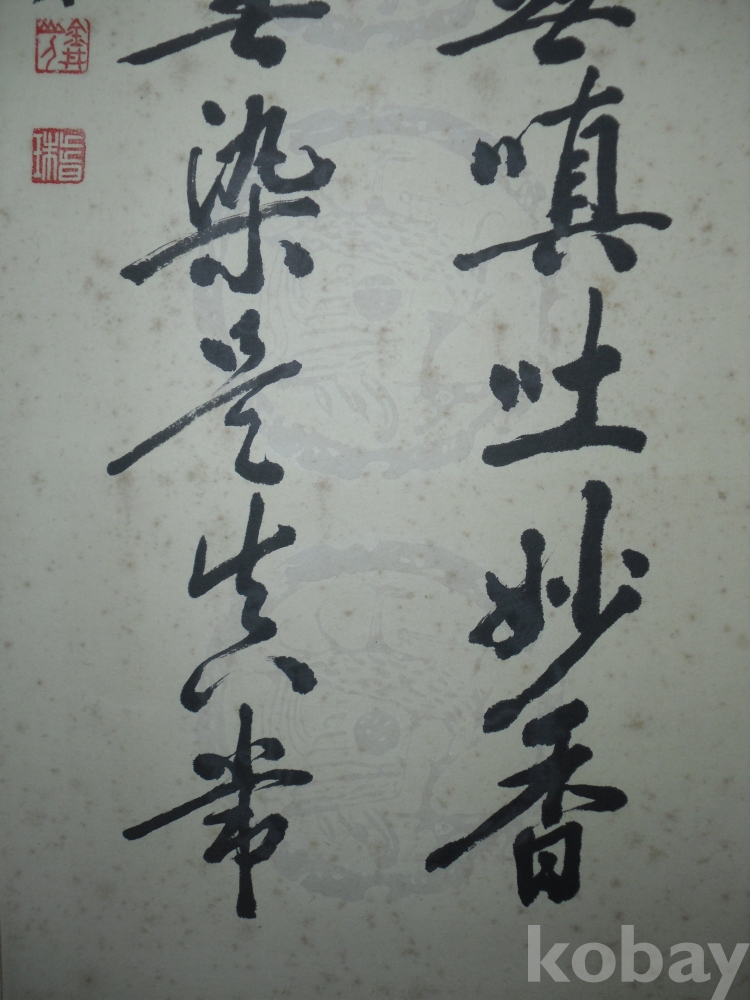 無嗔吐妙香
無染是真常
kobay